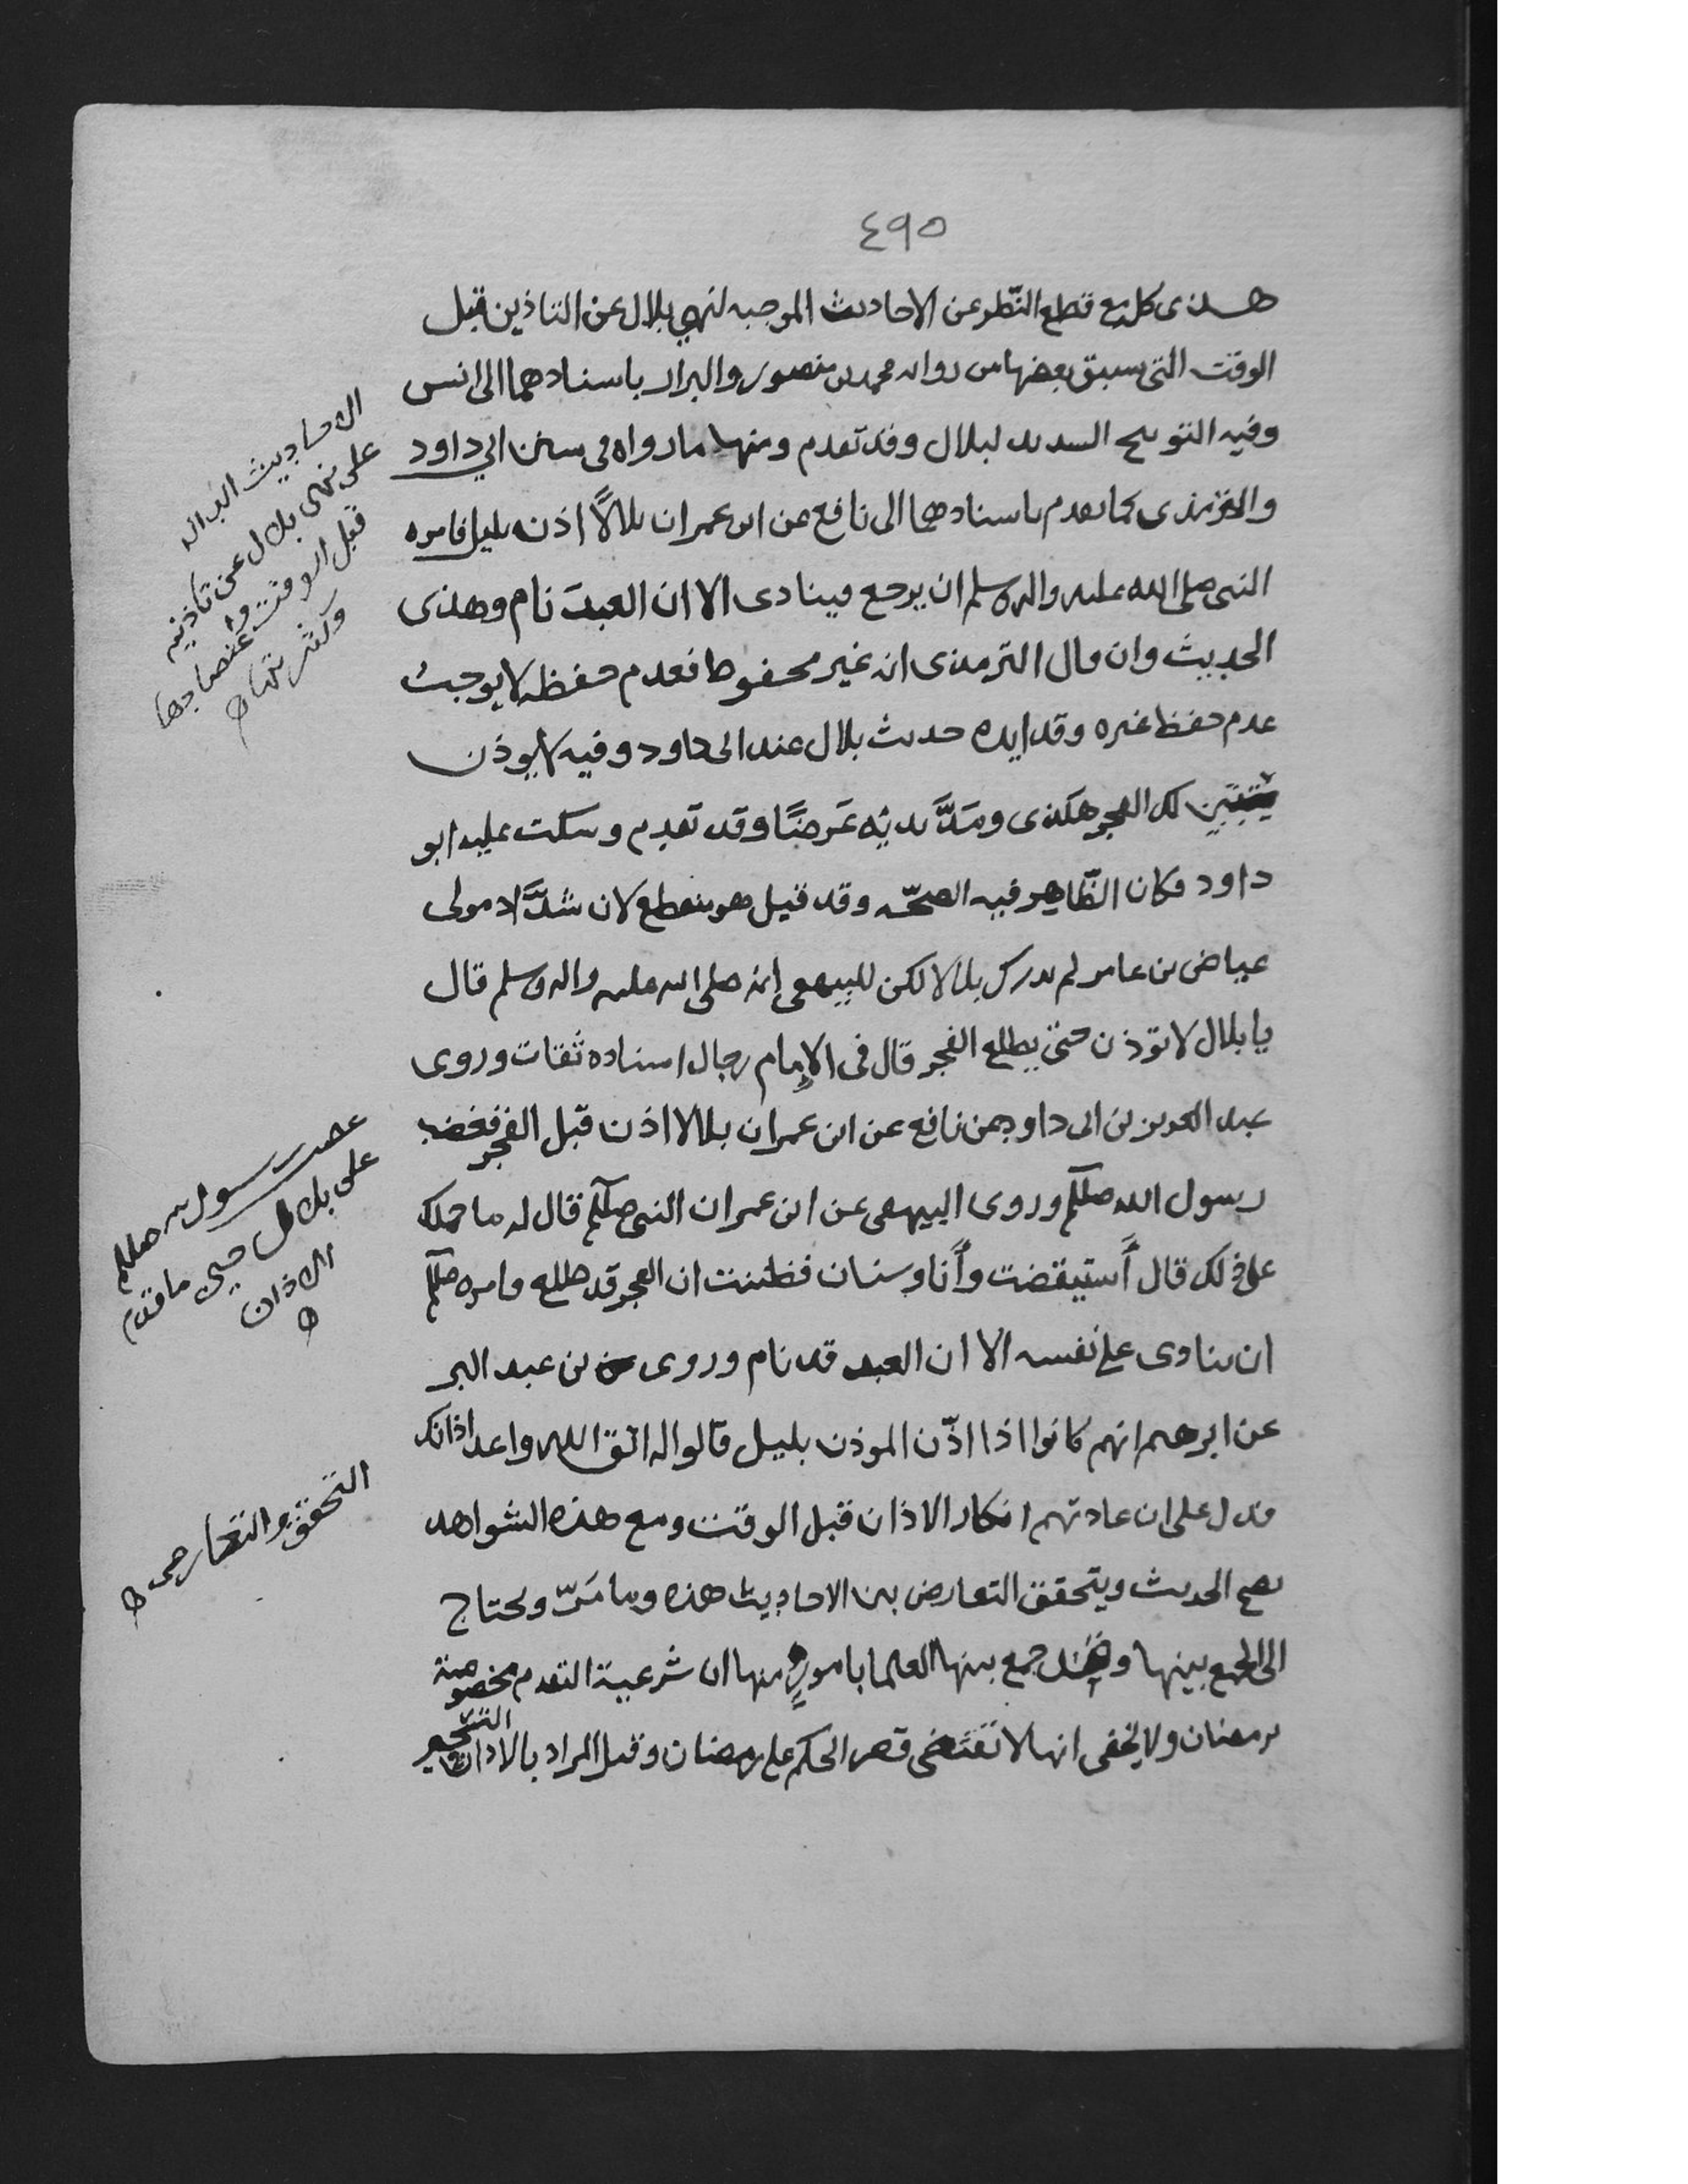 ٤٩٥
هذى كله مع قطع النّظر عن الاحاديث الموجبه لنهي بلال عن التاذين قبل
الوقت التى سبق بعضها من رواىه محمد بن منصور والبزار باسنادهما الى انس
وفيه التوبيح السديد لبلال وقد تقدم ومنها ما رواه في سنن ابي داود
والترمذى كما تقدم باسنادهما الى نافع عن ابن عمر ان بلالًا اذن بليل فامره
النبى صلى الله عليه واله وسلم ان يرجع فينادى الا ان العبد نام وهذى
الحديث وان قال الترمذى انه غير محفوظ فعدم حفظه لا يوجب
عدم حفظ غيره وقد ايده حديث بلال عند ابى داود وفيه لا يوذن
يتبين لك الفجر هكذى ومَدَّ يديه عَرضًا وقد تقدم وسكت عليه ابو
داود فكان الظّاهر فيه الصحّه وقد قيل هو منقطع لان شدَّاد مولى
عياض بن عامر لم يدرك بلالا لكن للبيهقى إنه صلى الله عليه واله وسلم قال
يا بلال لا توذن حتى يطلع الفجر قال فى الإمام رجال اسناده ثقات وروى
عبد العزيز بن ابى داود عن نافع عن ابن عمر ان بلالا اذن قبل الفجر فغضب
رسول الله صللم وروى البيهقى عن ابن عمر ان النبى صللم قال له ما حملك
على ذلك قال أستيقضت وأنا وسنان فظننت ان الفجر قد طلع وامره صللم
ان ينادى على نفسه الا ان العبد قد نام وروى بن عبد البر
عن ابرهيم انهم كانوا اذا اذّن الموذن بليل قالوا له اتق الله واعد اذانك
فدل على ان عادتهم انكار الاذان قبل الوقت ومع هذه الشواهد
يصح الحديث ويتحقق التعارض بين الاحاديث هذه وما مَرّ ويحتاج
الى الجمع بينها وقد جمع بينها العلما بامورٍ منها ان شرعية التقدم مخصوصة
برمضان ولا يخفى انها لا تقتضى قصر الحكم على رمضان وقيل المراد بالاذان
الاحاديث الداله
على نهى بلال عن تاذينه
قبل الوقت واعتضادها
وكثرتها
على بلال حين ما قدم
الاذان
التحقق والتعارض